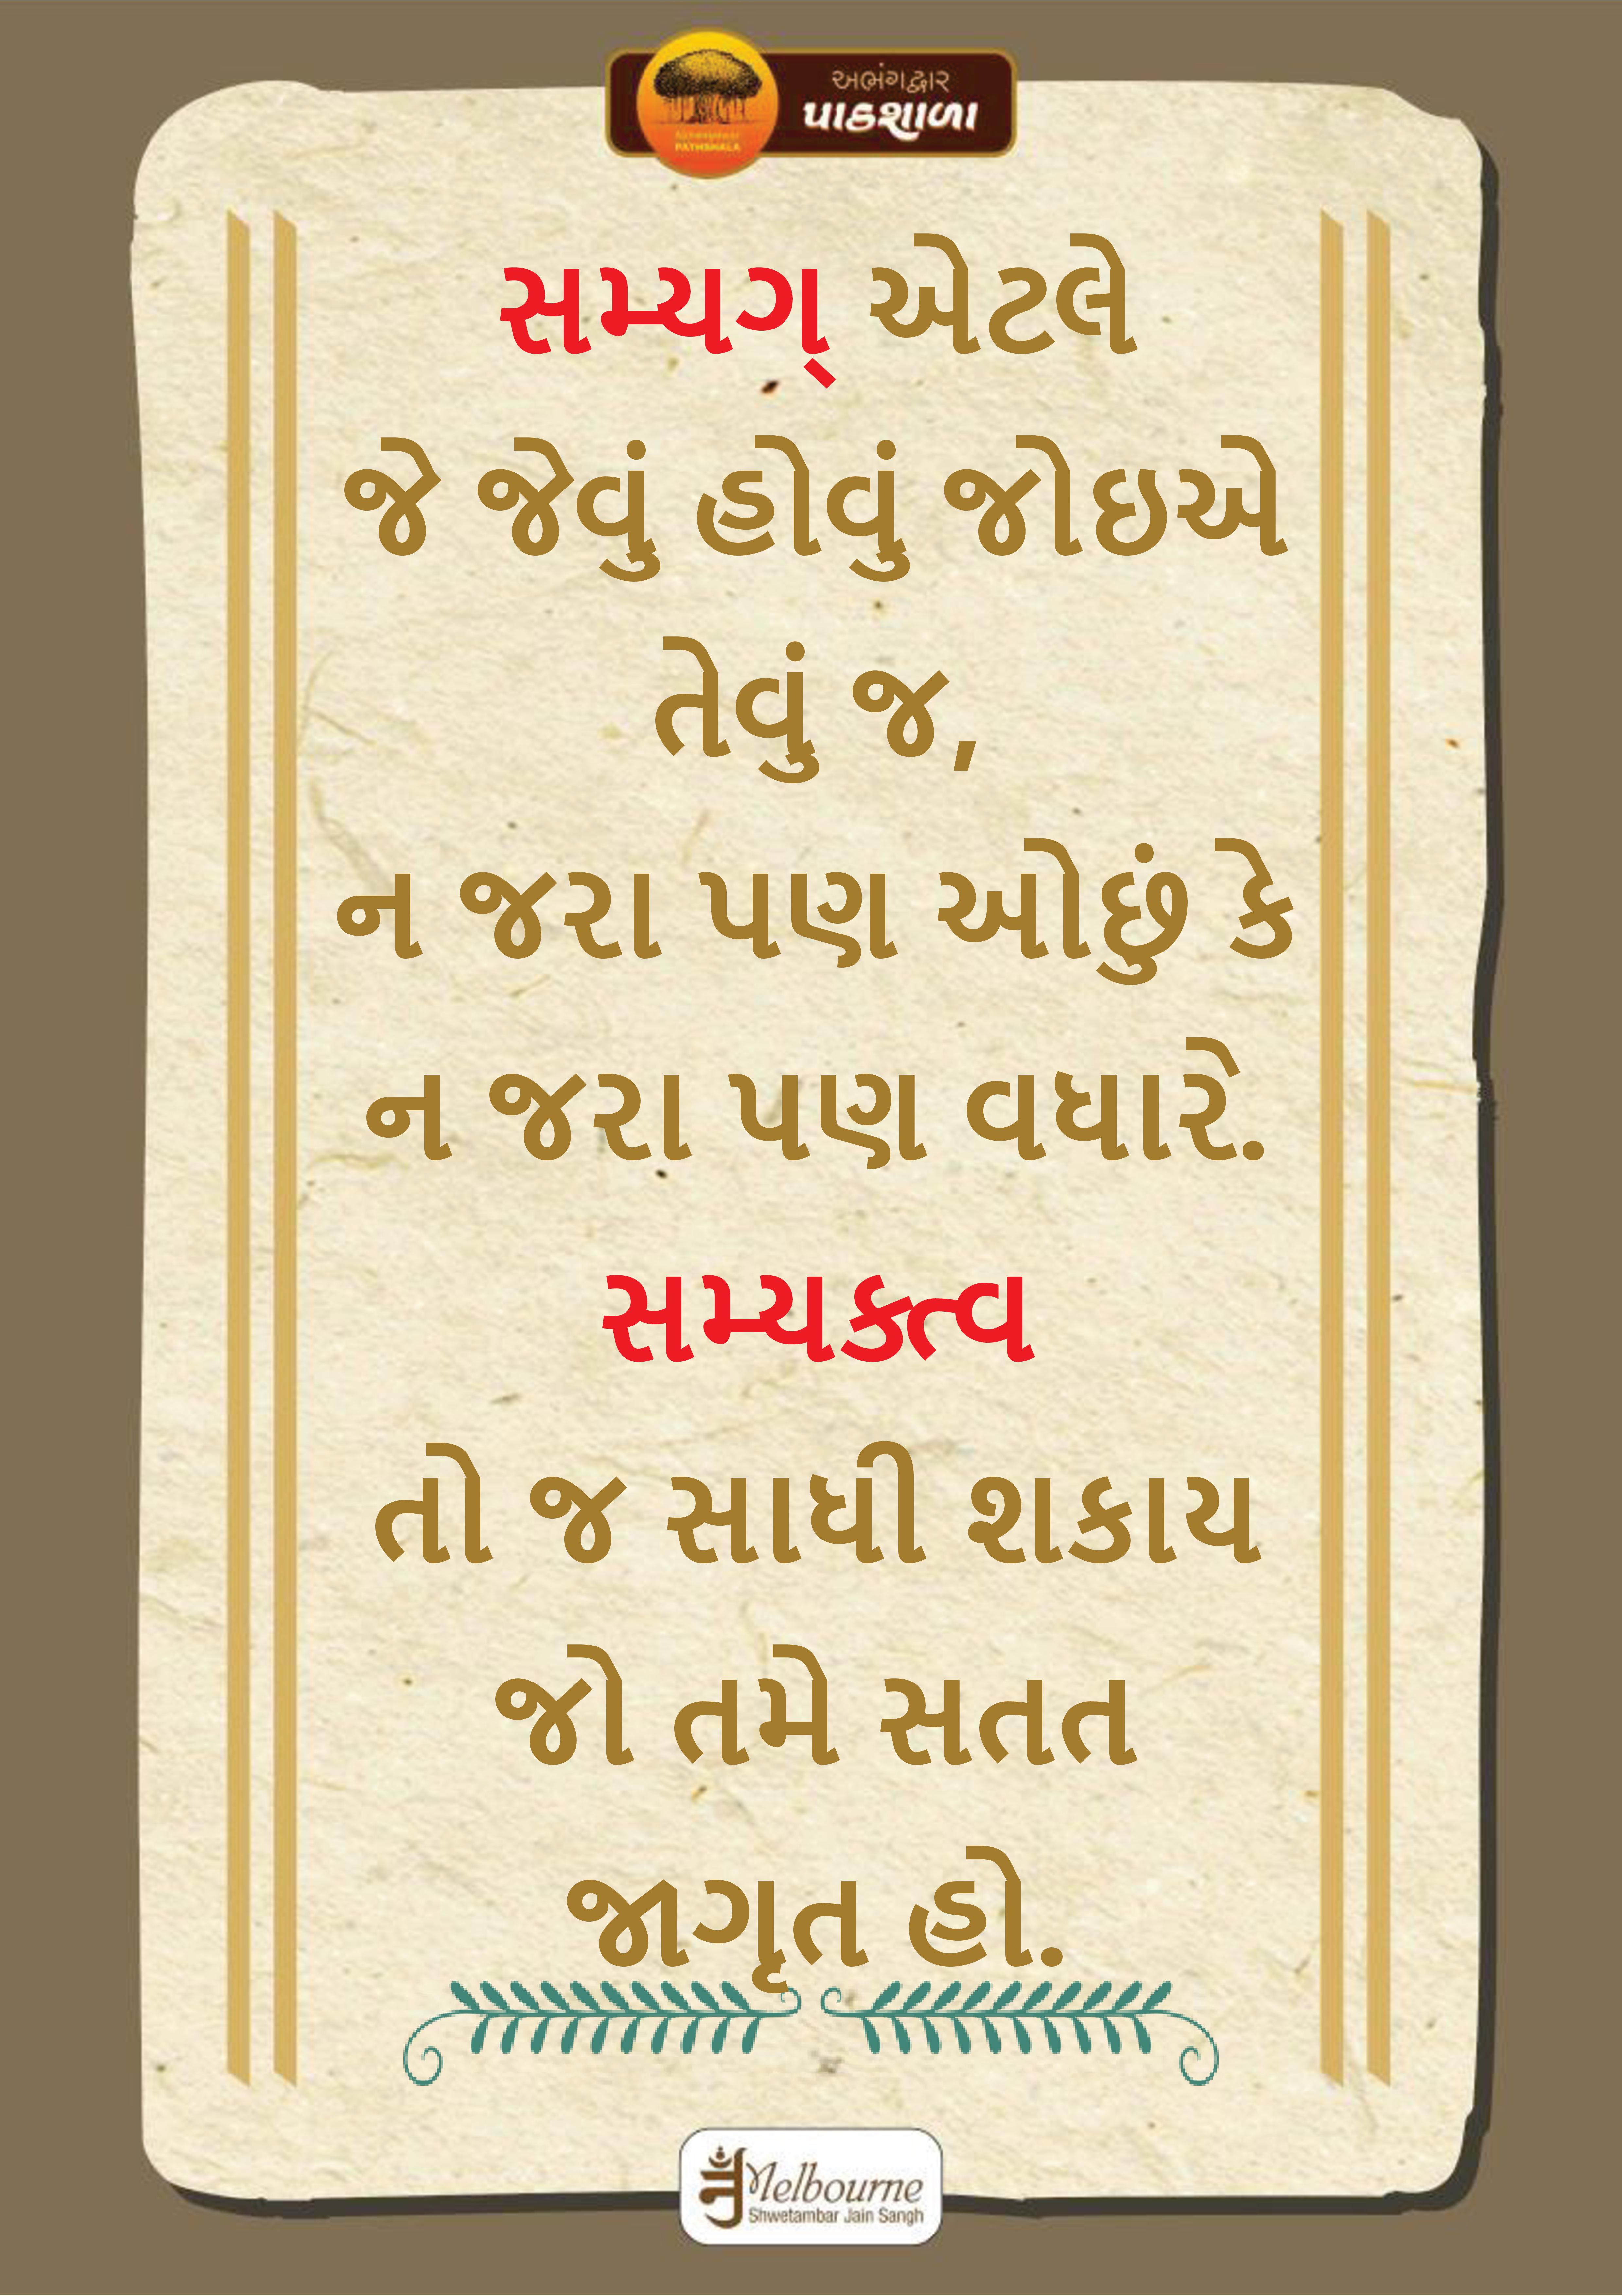 અભંગદ્વાર
પાઠશાળા
PATHSHALA
સમ્યગ્ એટલે
જે જેવું હોવું જોઇએ
તેવું જ,
ન જરા પણ ઓછું કે
ન જરા પણ વધારે.
સમ્યક્ત્વ
તો જ સાધી શકાય
જો તમે સતત
જાગૃત હો.
Melbourne
Shwetambar Jain Sangh